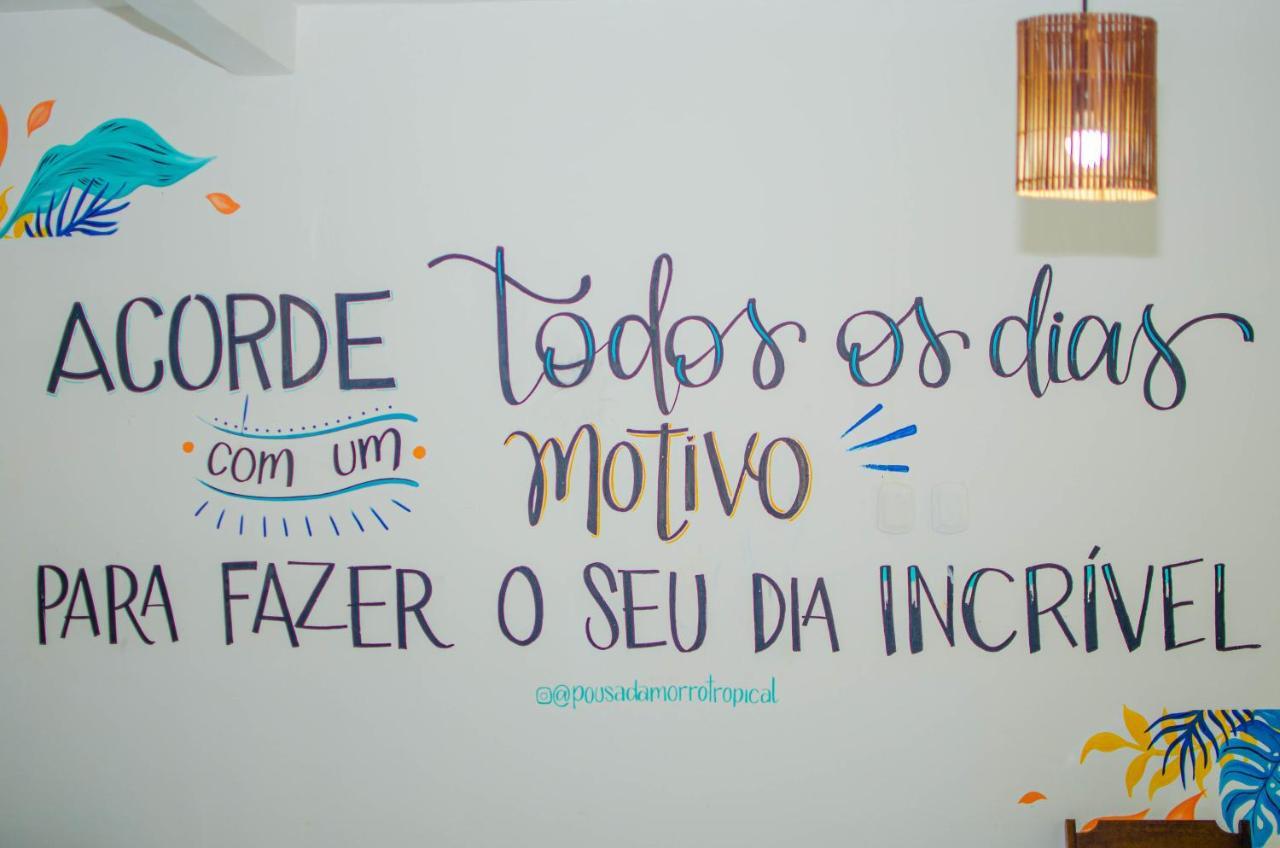 ACORDE todos os dias
com um MOTIVO
PARA FAZER O SEU DIA INCRÍVEL
@pousadamorrotropical